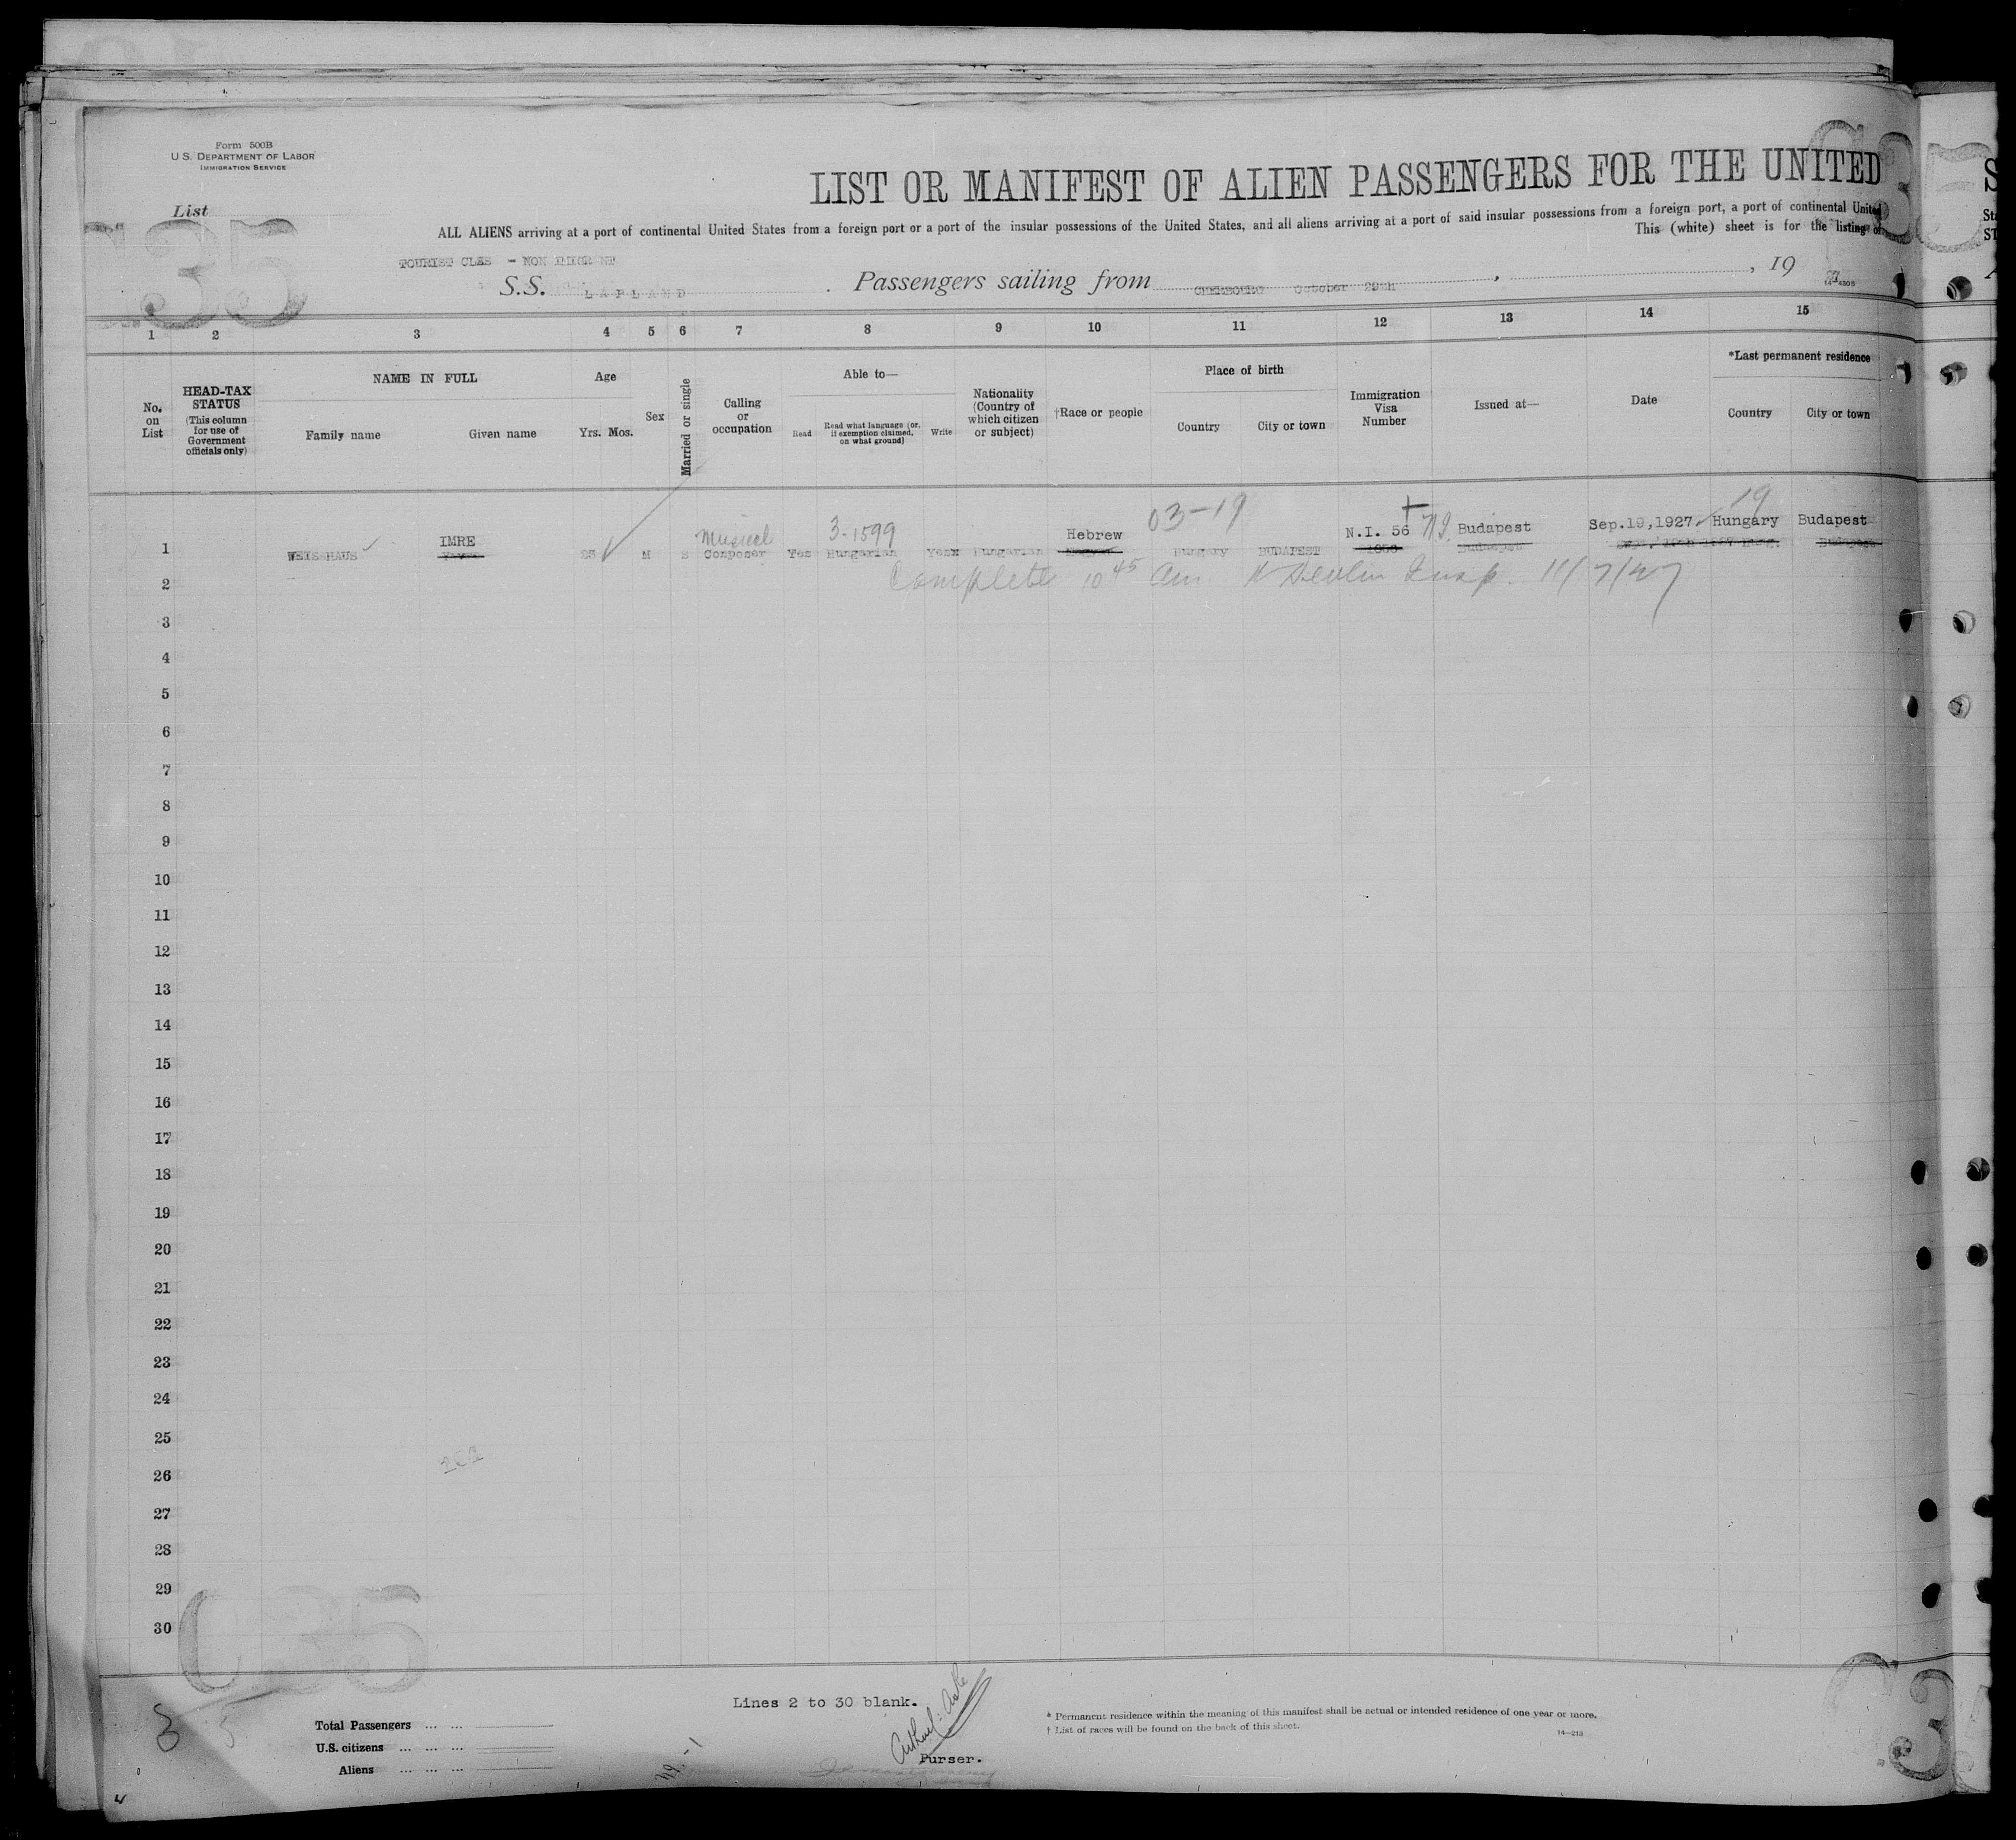 Form 500B
U.S. DEPARTMENT OF LABOR
IMMIGRATION SERVICE
List
C35
35
LIST OR MANIFEST OF ALIEN PASSENGERS FOR THE UNITED
ALL ALIENS arriving at a port of continental United States from a foreign port or a port of the insular possessions of the United States, and all aliens arriving at a port of said insular possessions from a foreign port, a port of continental United
This (white) sheet is for the listing of
TOURIST CLSS - NON
S.S. LAPLAND. Passengers sailing from CHERBOURG October 29th, , 19 27
14-4305
1 2 3 4 5 6 7 8 9 10 11 12 13 14 15
No. on List
HEAD-TAX STATUS (This column for use of Government officials only)
NAME IN FULL
Family name Given name
Age
Yrs. Mos.
Sex
Married or single
Calling or occupation
Able to—
Read Read what language (or, if exemption claimed, on what ground) Write
Nationality (Country of which citizen or subject)
†Race or people
Place of birth
Country City or town
Immigration Visa Number
Issued at—
Date
*Last permanent residence
Country City or town
03-19 19
Musical 3-1599
IMRE Hebrew N.I. 56 N.I. Budapest Sep.19,1927 Hungary Budapest
1 WEISSHAUS M S Composer Yes Hungarian Yesx Hungarian Hungary BUDAPEST Budapest
2 Complete 10 45 am. Devlin Insp. 11/7/27
3
4
5
6
7
8
9
10
11
12
13
14
15
16
17
18
19
20
21
22
23
24
25
26
27
28
29
30
C35
Lines 2 to 30 blank.
Total Passengers ... ...
U.S. citizens ... ... ...
Aliens ... ... ...
Purser.
* Permanent residence within the meaning of this manifest shall be actual or intended residence of one year or more.
† List of races will be found on the back of this sheet.
14-213
C3